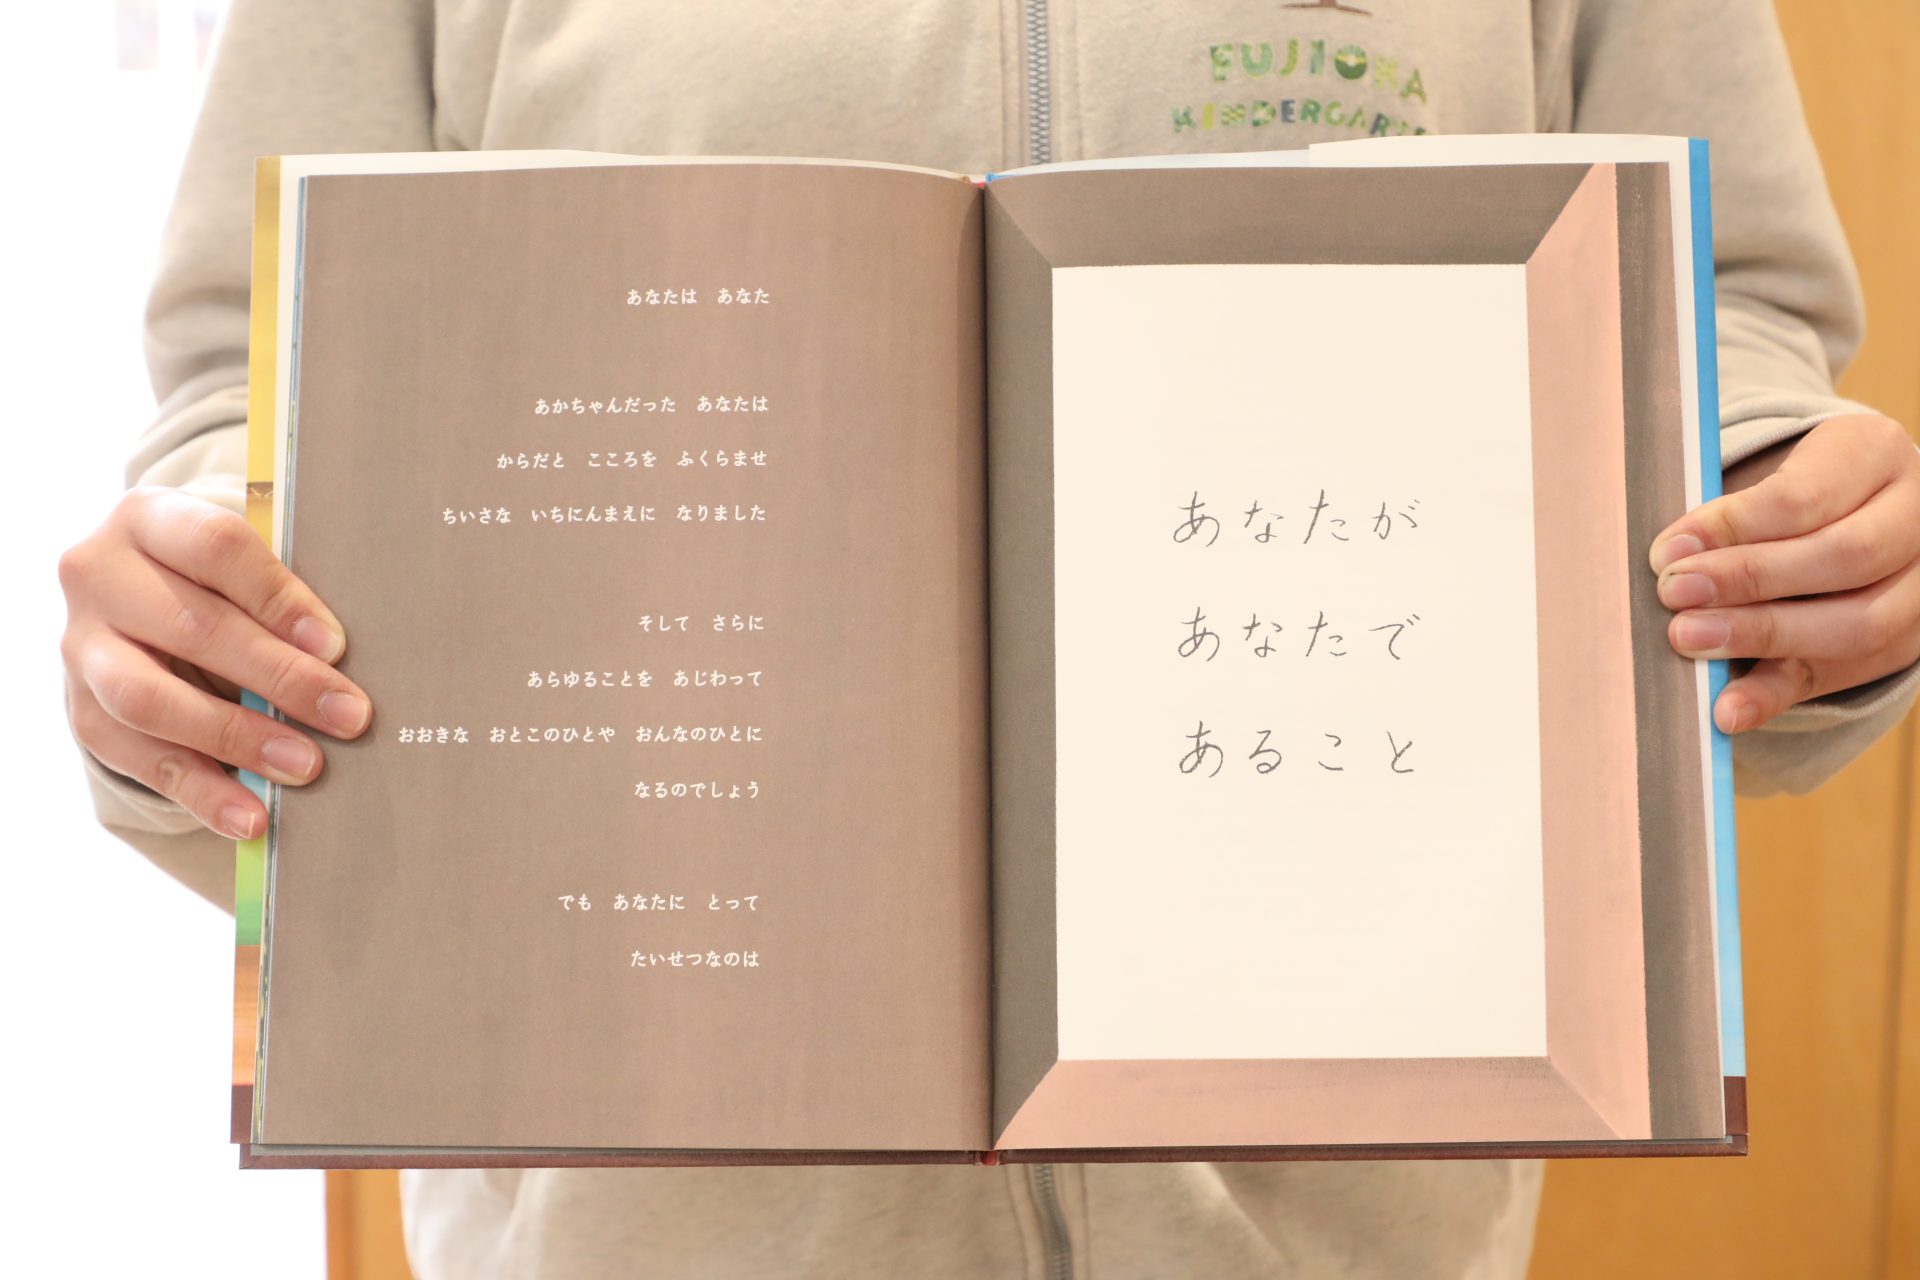 FUJIOKA
KINDERGARTE
あなたは　あなた
あかちゃんだった　あなたは
からだと　こころを　ふくらませ
ちいさな　いちにんまえに　なりました
そして　さらに
あらゆることを　あじわって
おおきな　おとこのひとや　おんなのひとに
なるのでしょう
でも　あなたに　とって
たいせつなのは
あなたが
あなたで
あること